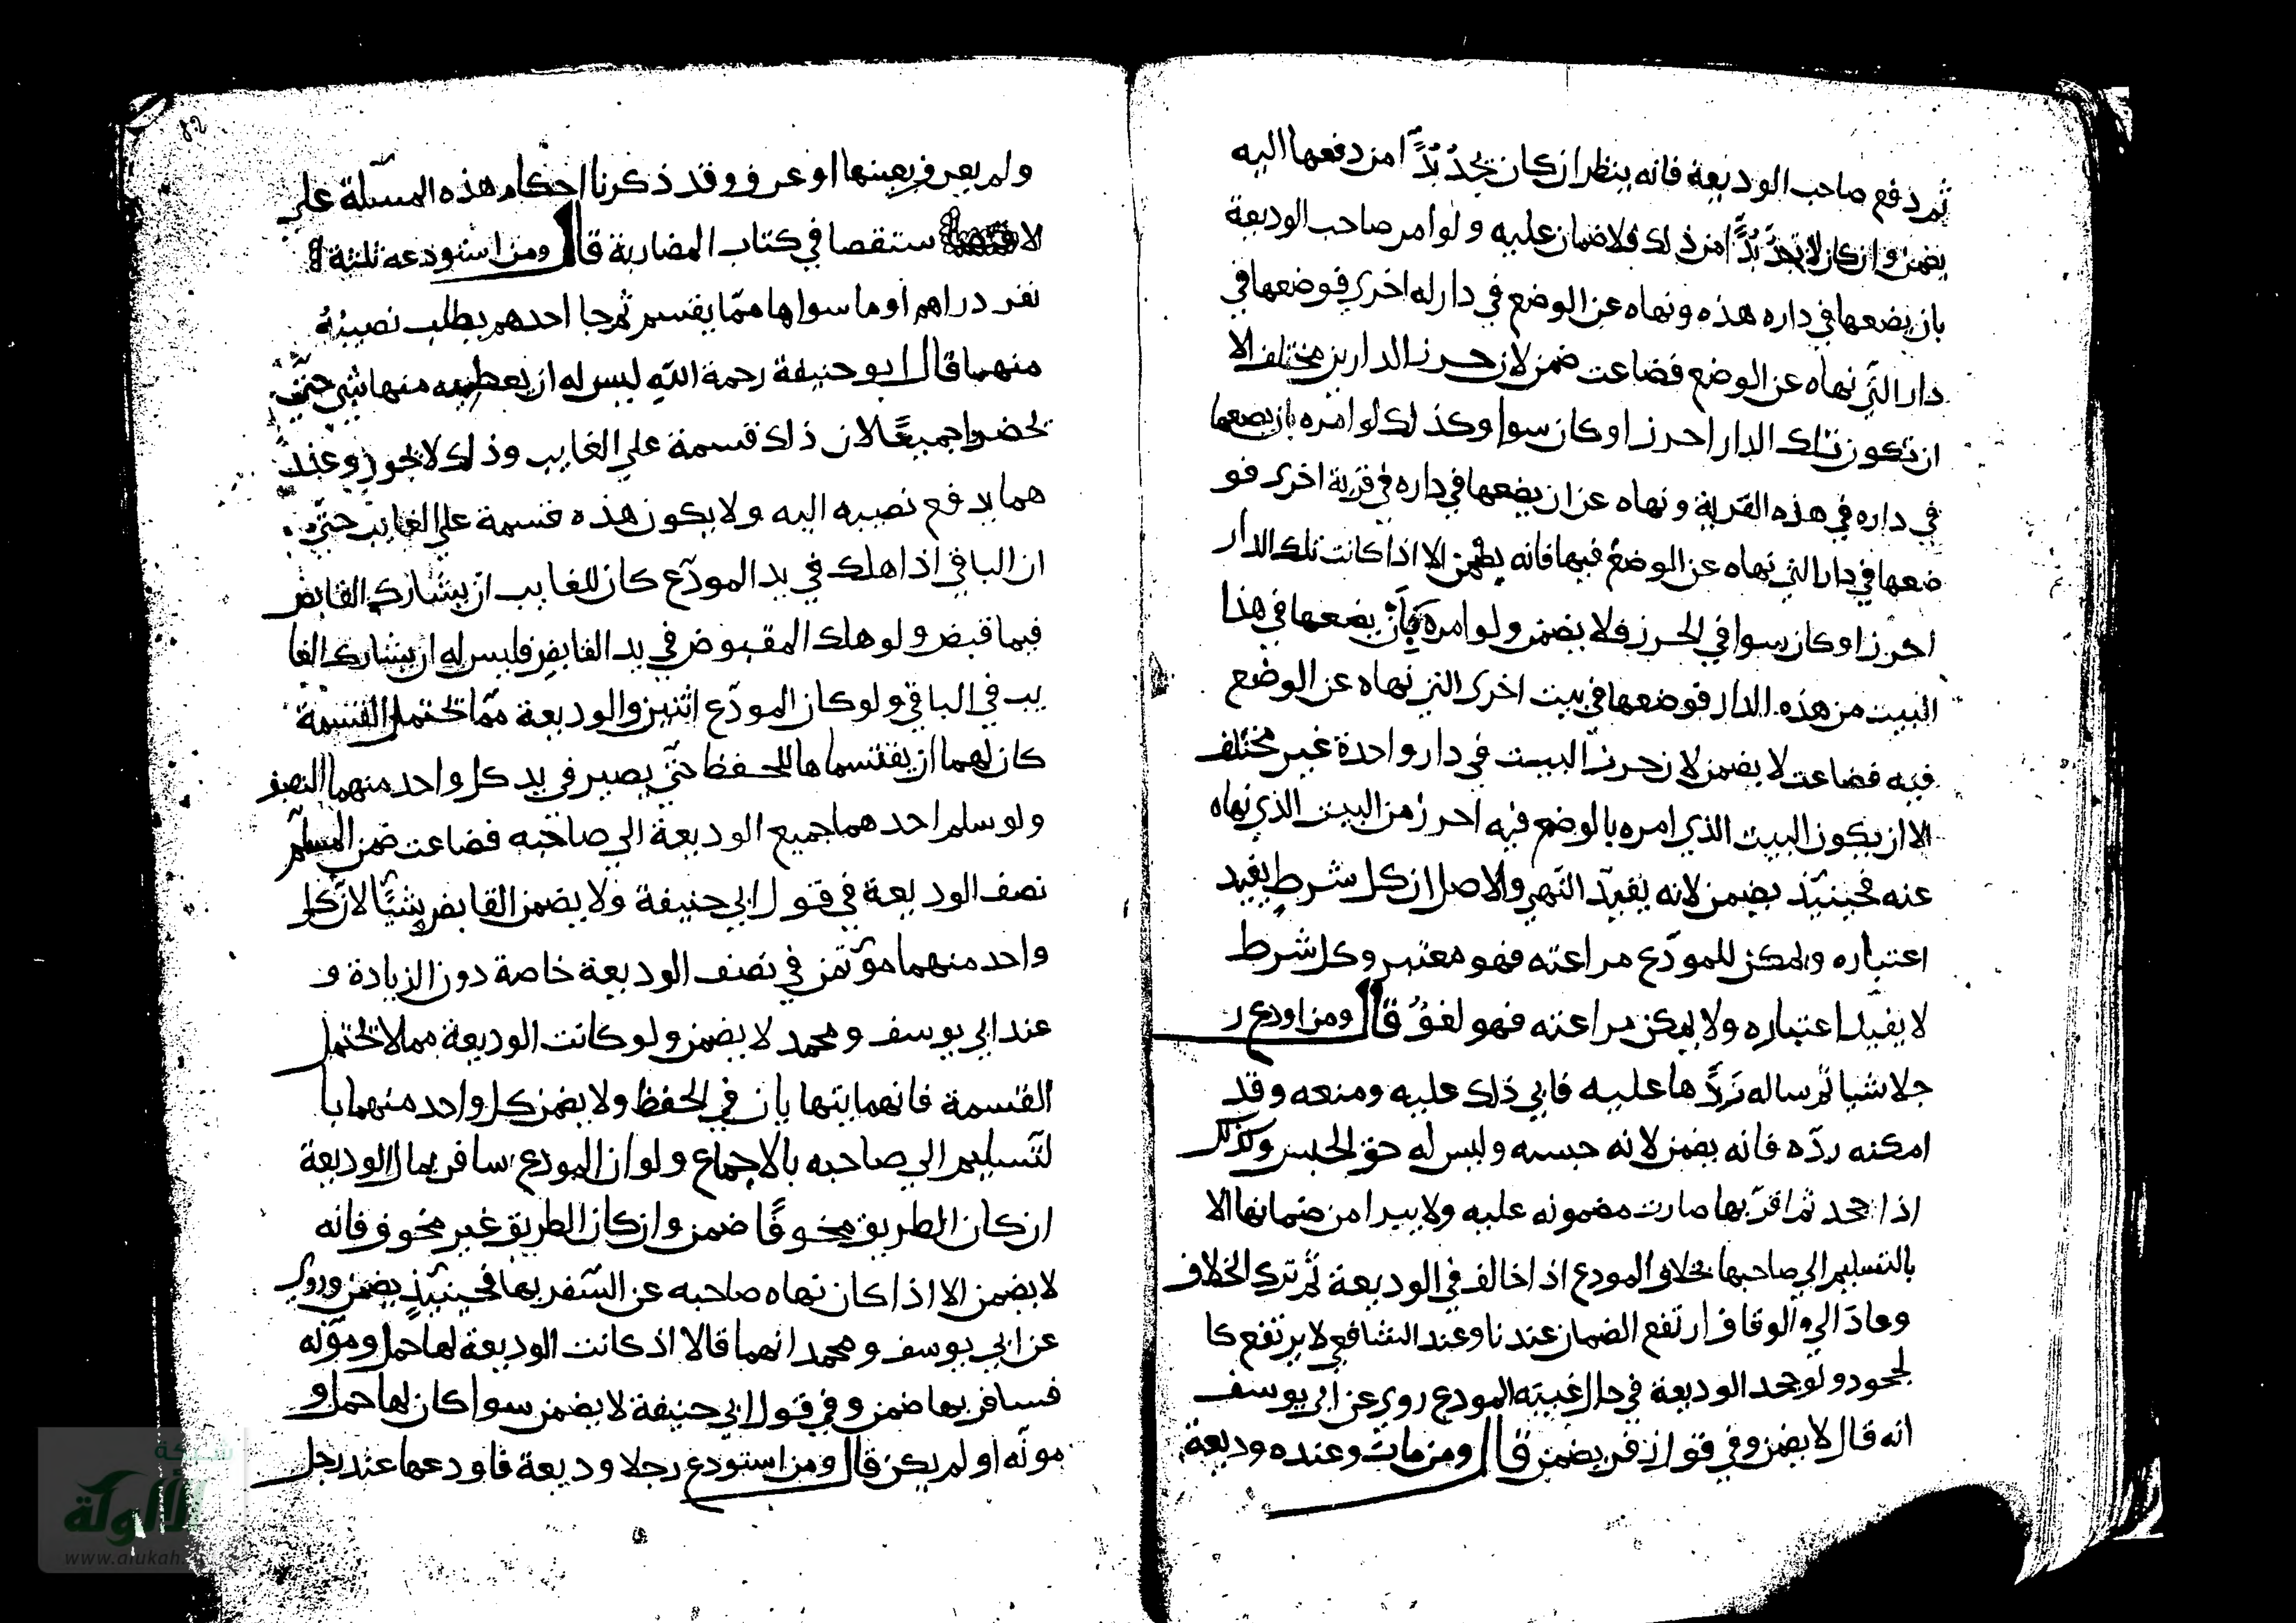 ثم دفع صاحب الوديعة فانه ينظر ان كان يجد بُدًّا من دفعها اليه
يضمن وان كان لا يجد بُدًّا من ذلك فلا ضمان عليه ولو امر صاحب الوديعة
بان يضعها في داره هذه ونهاه عن الوضع في دار له اخرى فوضعها في
دار التي نهاه عن الوضع فضاعت ضمن لان حرز الدارين مختلف الا
ان تكون تلك الدار احرز او كان سوا وكذلك لو امره بان يضعها
في داره في هذه القرية ونهاه عن ان يضعها في داره في قرية اخرى فو
ضعها في دار التي نهاه عن الوضع فيها فانه يضمن الا اذا كانت تلك الدار
احرز او كان سوا في الحرز فلا يضمن ولو امره بان يضعها في هذا
البيت من هذه الدار فوضعها في بيت اخرى التي نهاه عن الوضع
فيه فضاعت لا يضمن لان حرز البيت في دار واحدة غير مختلف
الا ان يكون البيت الذي امره بالوضع فيه احرز من البيت الذي نهاه
عنه فحينئذ يضمن لانه يفيد النهي والاصل ان كل شرط يفيد
اعتباره ويمكن للمودع مراعته فهو معتبر وكل شرط
لا يفيد اعتباره ولا يمكن مراعته فهو لغوٌ قال ومن اودع ر
جلا شيا ثم ساله رَدَّها عليه فابي ذلك عليه ومنعه وقد
امكنه ردّه فانه يضمن لانه حبسه وليس له حق الحبس وكذلك
اذا جحد ثم اقرّ بها صارت مضمونه عليه ولا يبرا من ضمانها الا
بالتسليم الي صاحبها بخلاف المودع اذا خالف في الوديعة ثم ترك الخلاف
وعادَ الي الوفاق ارتفع الضمان عندنا وعند الشافعي لا يرتفع كا
لجحود ولو جحد الوديعة في حال غيبته المودع روي عن ابي يوسف
انه قال لا يضمن وفي قول زفر يضمن قال ومن مات وعنده وديعة
82
ولم يعرف بعينها او عرف وقد ذكرنا احكام هذه المسئلة علي
لا ستقصا في كتاب المضاربة قال ومن استودعه ثلثة
نفر دراهم او ما سواها ممّا يقسم ثم جا احدهم يطلب نصيبهُ
منهما قال ابو حنيفة رحمة الله ليس له ان يعطيه منها شي حتّي
يحضروا جميعًا لان ذلك قسمة علي الغايب وذلك لا يجوز وعند
هما يدفع نصيبه اليه ولا يكون هذه قسمة علي الغايب حتّي
ان الباقي اذا هلك في يد المودَع كان للغايب ان يشارك القابض
فيما قبض ولو هلك المقبوض في يد القابض فليس له ان يشارك الغا
يب في الباقي ولو كان المودَع اثنين والوديعة ممّا تحتمل القسمة
كان لهما ان يقتسماها للحفظ حتّي يصير في يد كل واحد منهما النصف
ولو سلم احدهما جميع الوديعة الي صاحبه فضاعت ضمن المسلّم
نصف الوديعة في قول ابي حنيفة ولا يضمن القابض شيًّا لان كل
واحد منهما مؤتمن في نصف الوديعة خاصة دون الزيادة و
عند ابي يوسف ومحمد لا يضمن ولو كانت الوديعة مما لا تحتمل
القسمة فانهما يتهايان في الحفظ ولا يضمن كل واحد منهما با
لتّسليم الي صاحبه بالاجماع ولو ان المودع سافر بمال الوديعة
ان كان الطريق مخوفًا ضمن وان كان الطريق غير مخوف فانه
لا يضمن الا اذا كان نهاه صاحبه عن السّفر بها فحينئذٍ يضمن وروي
عن ابي يوسف ومحمد انهما قالا اذ كانت الوديعة لها حمل ومؤنه
فسافر بها ضمن وفي قول ابي حنيفة لا يضمن سوا كان لها حمل و
مونه او لم يكن قال ومن استودع رجلا وديعة فاودعها عند رجل
شبكة
الألوكة
www.alukah